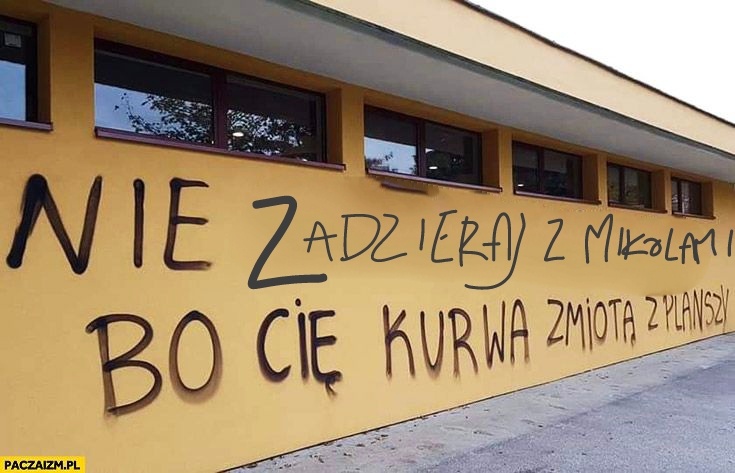 NIE ZADZIERAJ Z MIKOLAMI
BO CIĘ KURWA ZMIOTĄ Z PLANSZY
PACZAIZM.PL